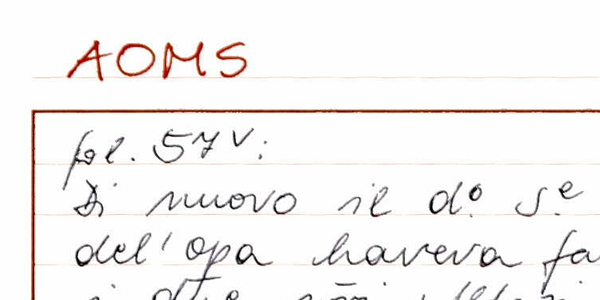 AOMS
fol. 57v:
Di nuovo il d.º s.e
del'opa haveva fa